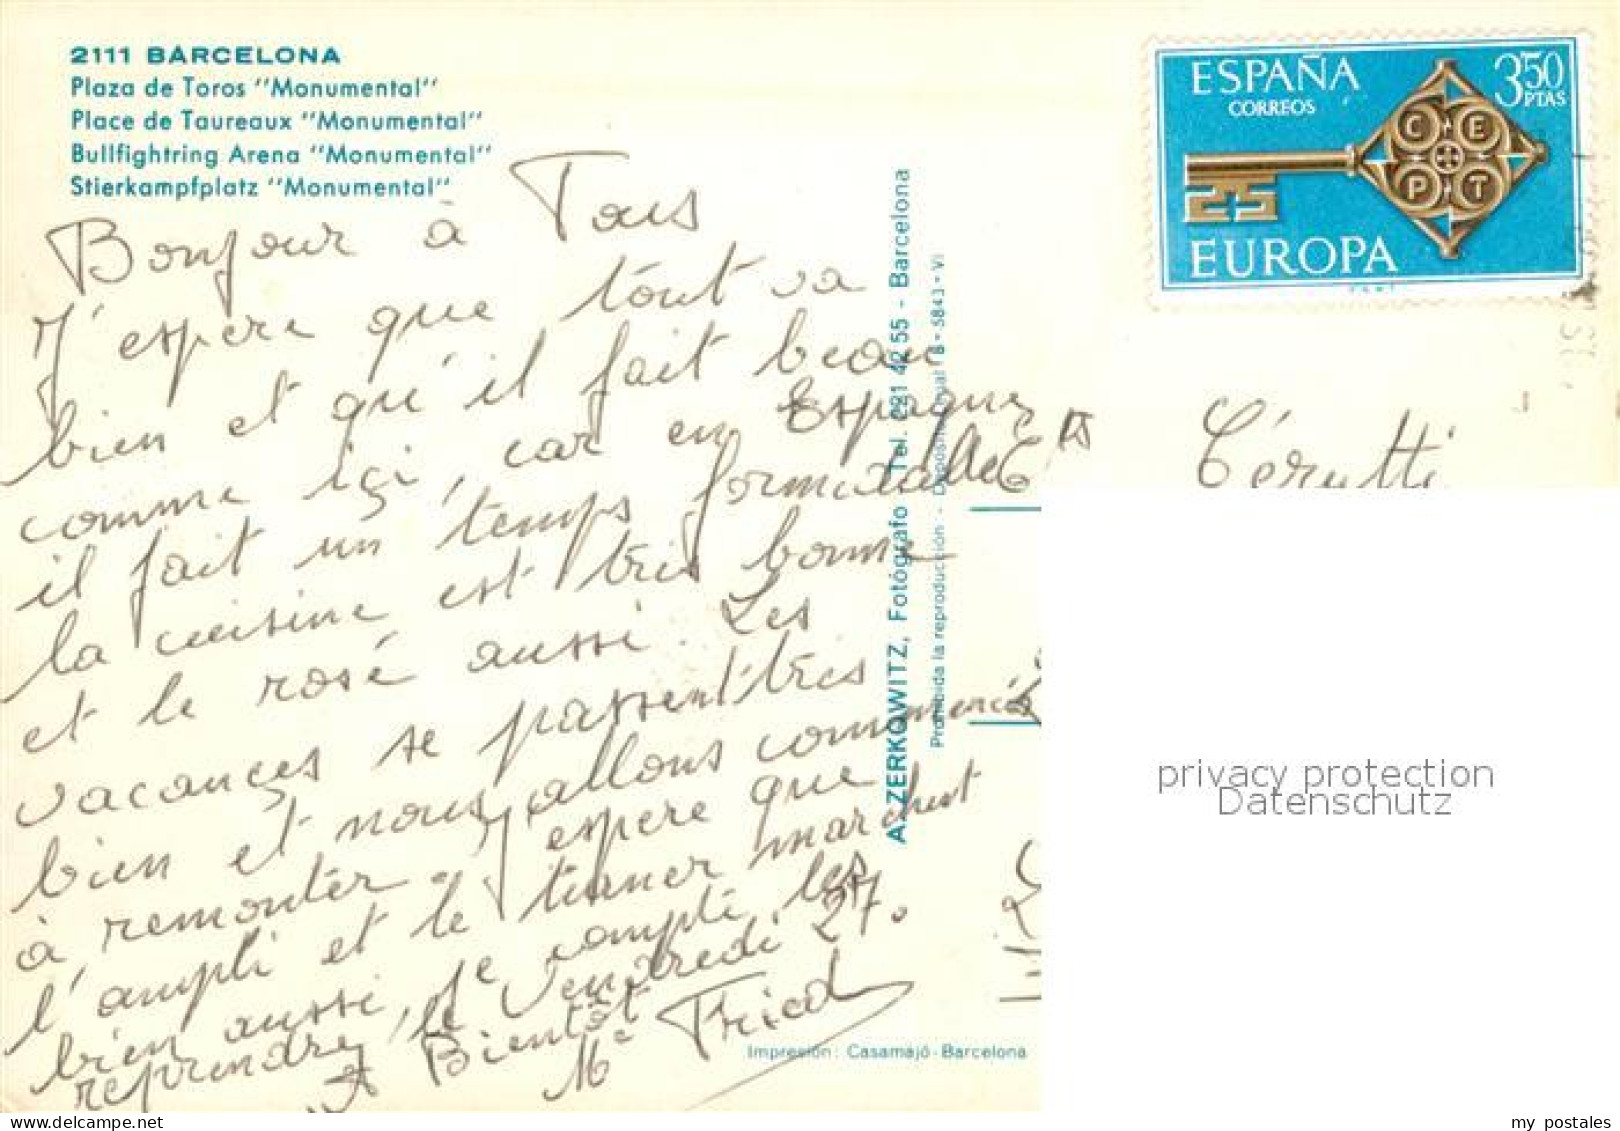 2111 BARCELONA
Plaza de Toros "Monumental"
Place de Taureaux "Monumental"
Bullfightring Arena "Monumental"
Stierkampfplatz "Monumental"
Bonjour à Tous
J'espere que tout va
bien et qu'il fait beau
comme içi, car en Espagne
il fait un temps formidable
la cuisine est très bonne
et le rosé aussi. Les
vacances se passent très
bien et nous allons commencés
à remonter. J'espere que
l'ampli et le tuner marchent
bien aussi, je compte les
reprendre le Vendredi 27.
A Bientôt
Mc Fricol
A. ZERKOWITZ, Fotógrafo Tel. 221 42 55 - Barcelona
Prohibida la reproducción - Depósito Legal B - 5843 - VI
Impresión: Casamajó - Barcelona
ESPAÑA
CORREOS
3'50
PTAS
C E
P T
EUROPA
Ets Cérutti
privacy protection
Datenschutz
my postales